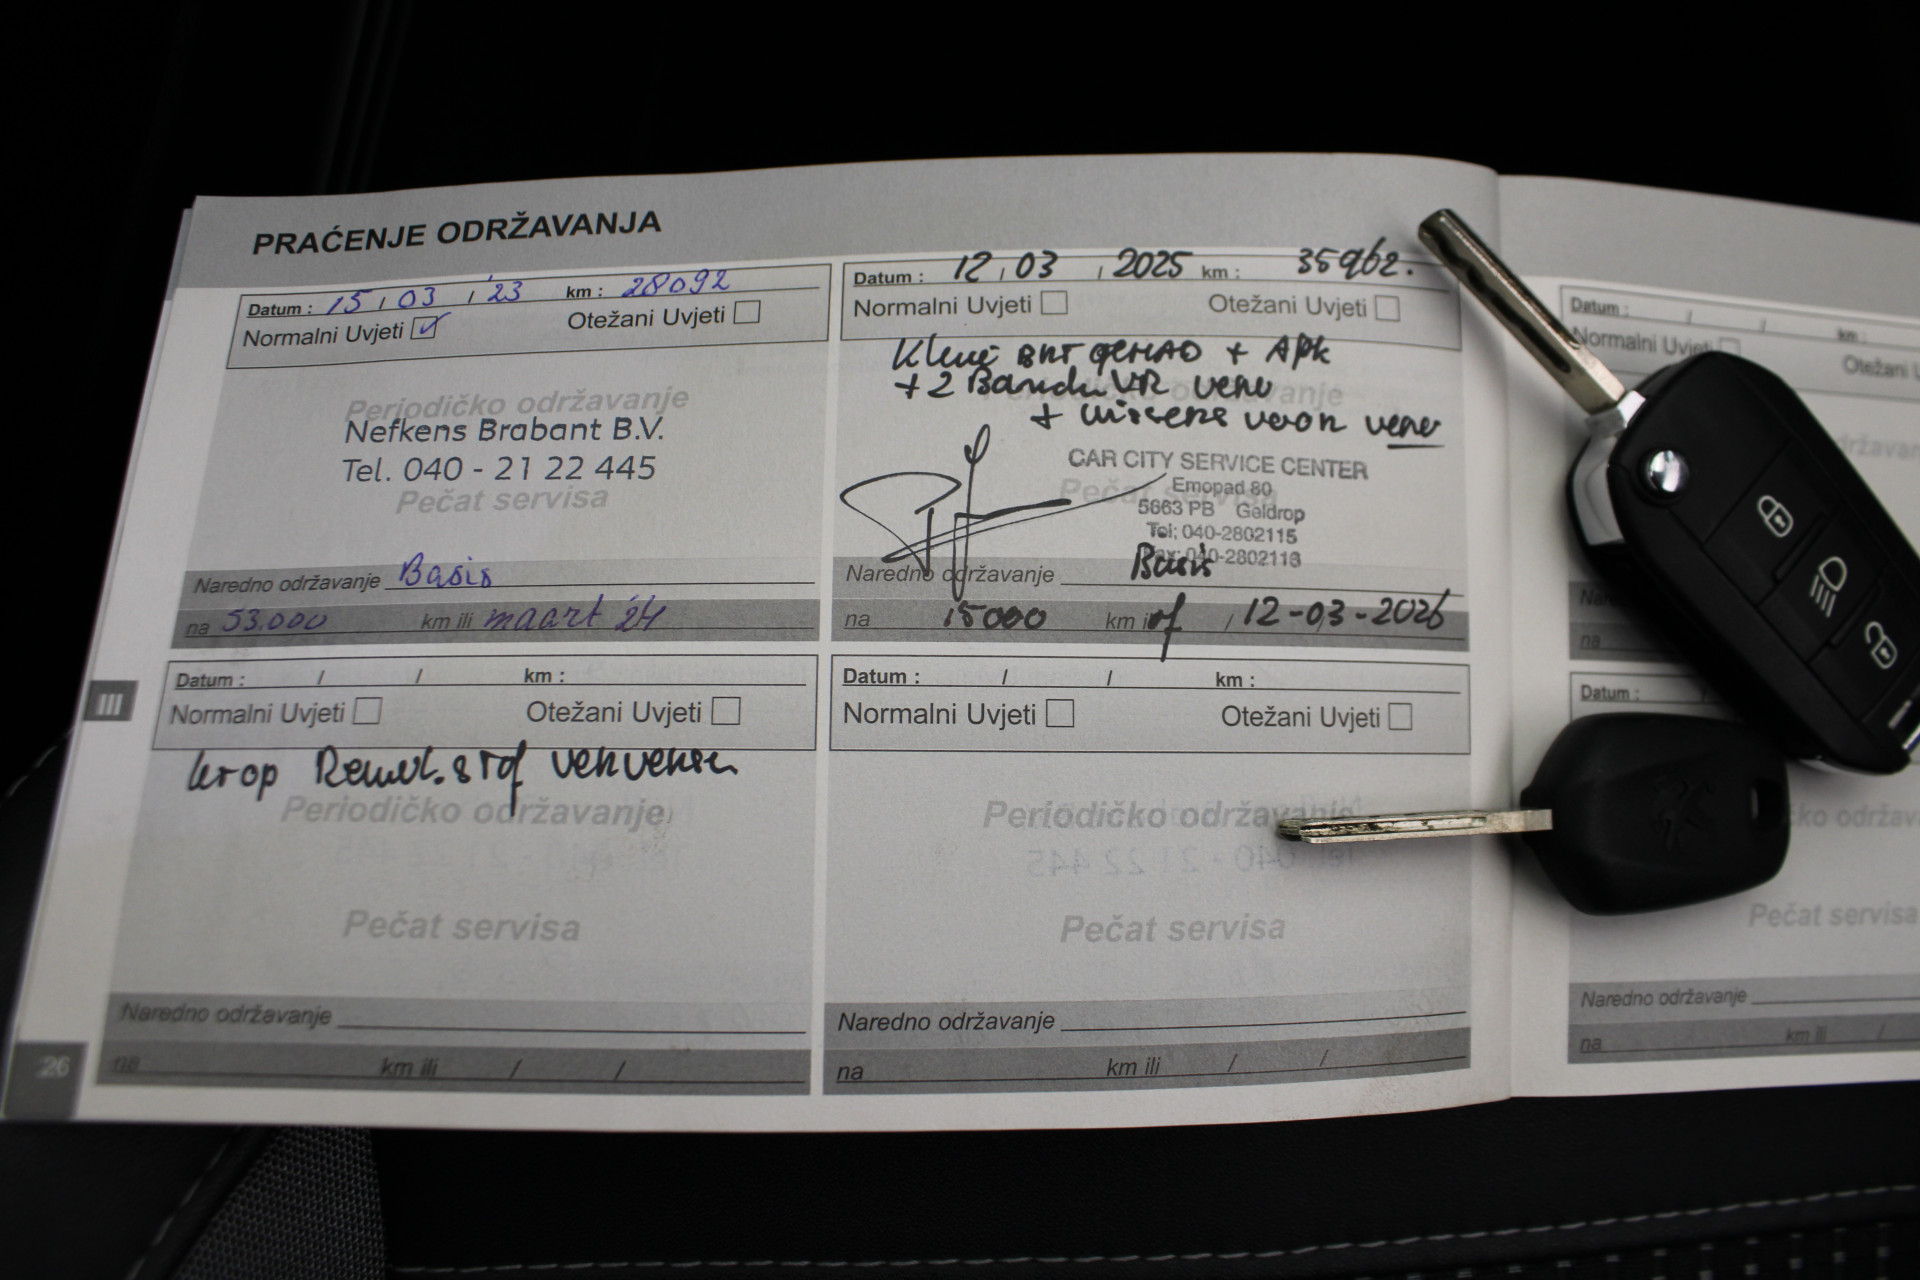 PRAĆENJE ODRŽAVANJA
Datum : 15 / 03 / '23 km : 28092
Normalni Uvjeti Otežani Uvjeti
Periodičko održavanje
Nefkens Brabant B.V.
Tel. 040 - 21 22 445
Pečat servisa
Naredno održavanje Basis
na 53.000 km ili maart 24
Datum : 12 / 03 / 2025 km : 35962.
Normalni Uvjeti Otežani Uvjeti
+ APK
+ 2 Banden VR
+
CAR CITY SERVICE CENTER
Emopad 80
5663 PB Geldrop
Tel; 040-2802115
Fax; 040-2802113
Naredno održavanje Basis
na 15000 km of / 12-03-2026
Datum : / / km :
Normalni Uvjeti Otežani Uvjeti
Periodičko održavanje
Pečat servisa
Naredno održavanje
na km ili / /
Datum : / / km :
Normalni Uvjeti Otežani Uvjeti
Periodičko održavanje
Pečat servisa
Naredno održavanje
na km ili / /
III
26
Datum : / / km :
Normalni Uvjeti
Datum :
Pečat servisa
Naredno održavanje
na km ili /